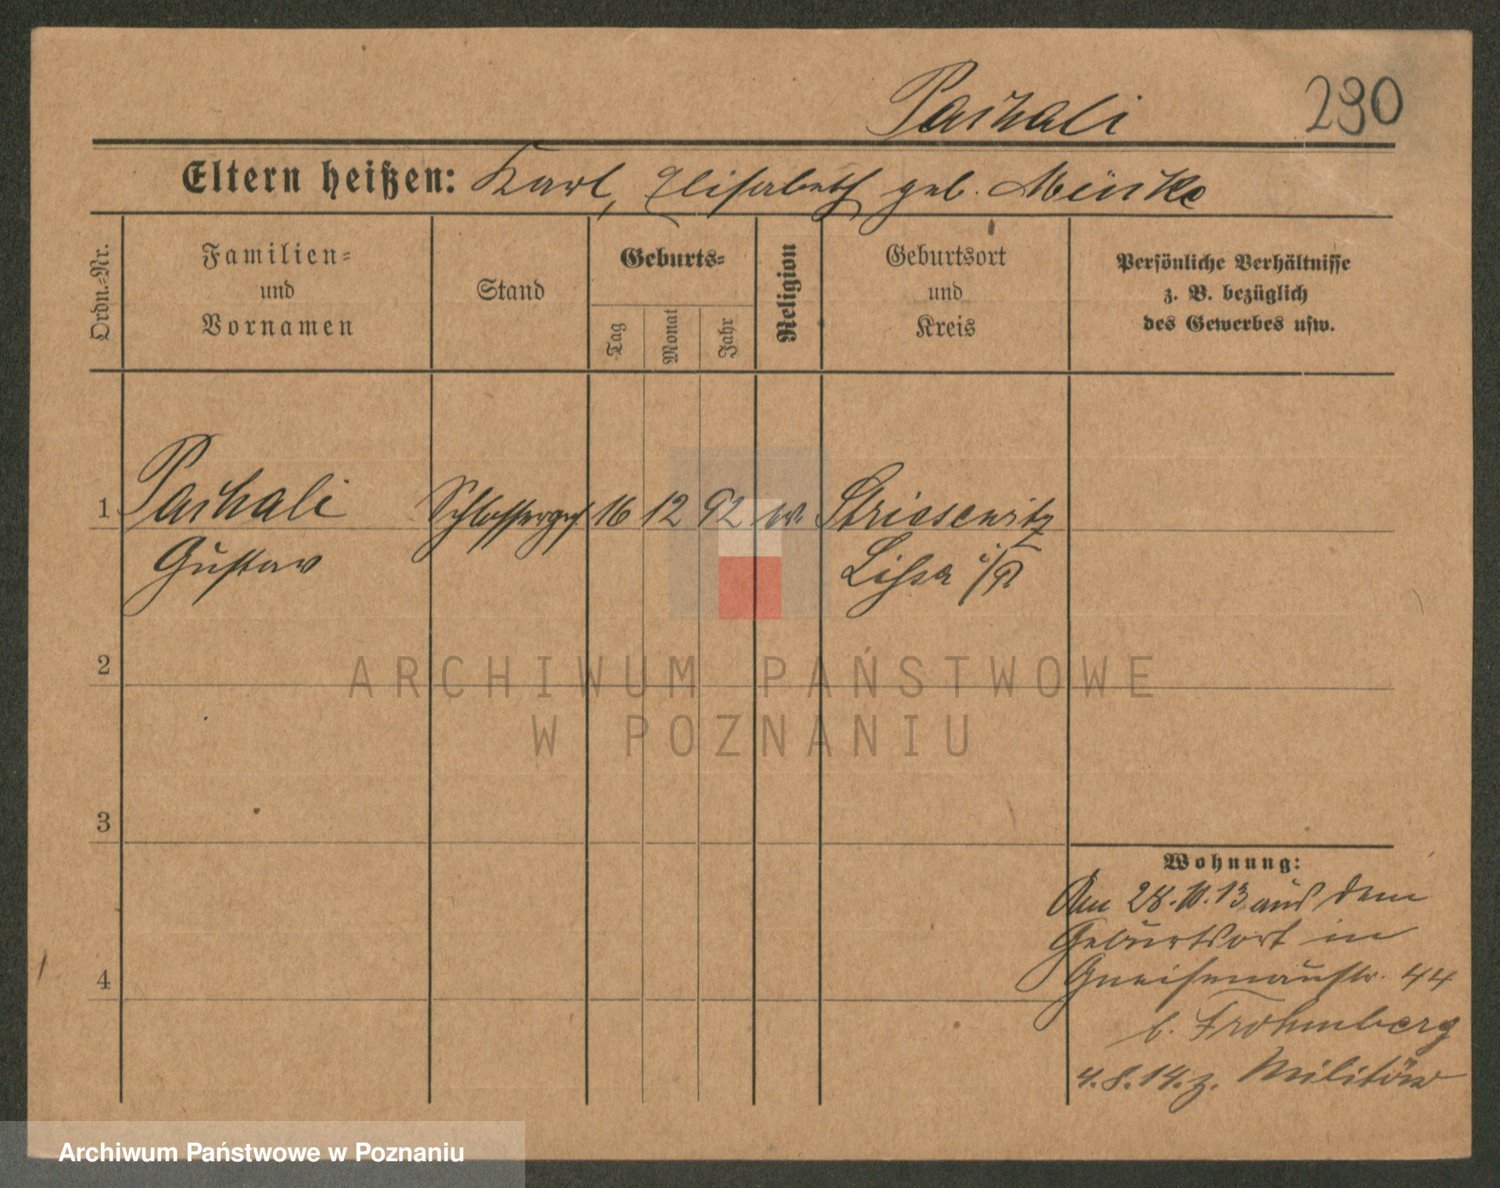 Paschali 290
Eltern heißen: Karl, Elisabeth geb.
Ordn.-Nr.
Familien=
und
Vornamen
Stand
Geburts=
Tag
Monat
Jahr
Religion
Geburtsort
und
Kreis
Persönliche Verhältnisse
z. B. bezüglich
des Gewerbes usw.
1 Paschali Schlosserges 16 12 92 Striesewitz
Gustav Lissa i/P
2
3
4
Wohnung:
Am 28.10.13 aus dem
Geburtsort in
Gneisenaustr. 44
b. Frohmberg
4.8.14. z. Militär
ARCHIWUM PAŃSTWOWE
W POZNANIU
Archiwum Państwowe w Poznaniu